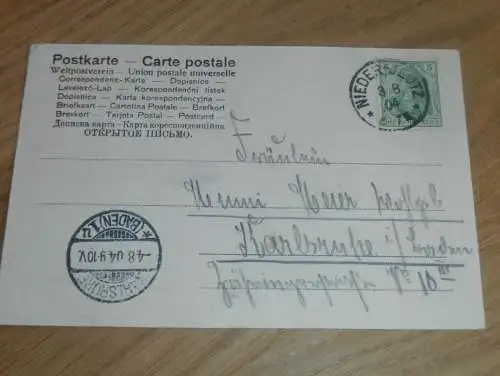 Postkarte — Carte postale
Weltpostverein — Union postale universelle
Correspondenz-Karte — Dopisnice —
Levelező-Lap — Korespondenční lístek
Dopisnica — Karta korespondencyjna —
Briefkaart — Cartolina Postale — Brefkort
Brevkort — Tarjeta Postal — Postcard —
Дописна карта — Карта кореспонденційна
ОТКРЫТОЕ ПИСЬМО.
Fräulein
Meier
Karlsruhe i/ Baden
Zähringerstraße No 10 III
5
04
KARLSRUHE
-4.8.04.9-10V.
* (BADEN) 1 u